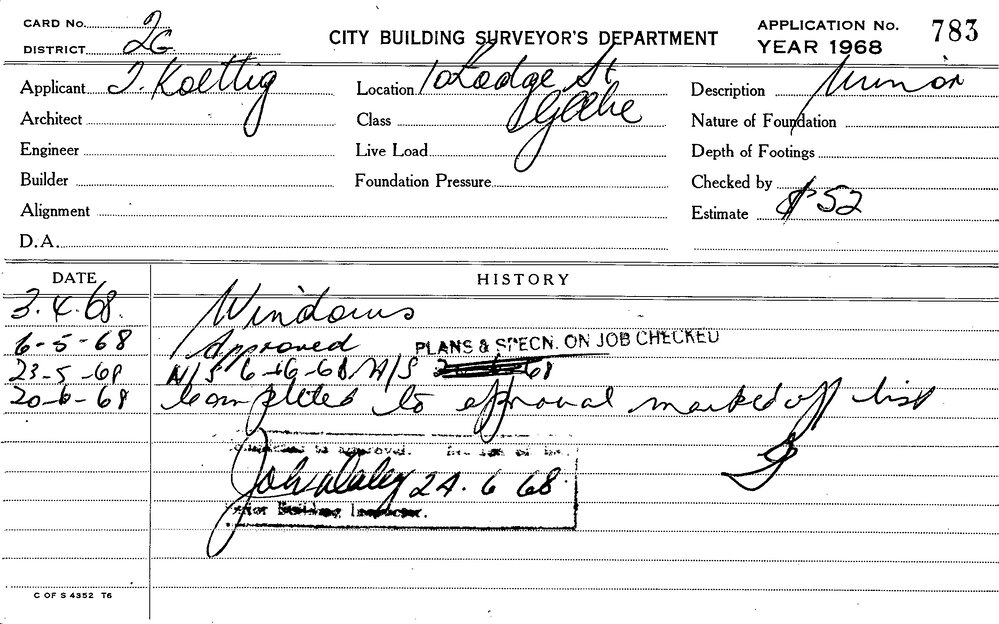 CARD No. 2
DISTRICT 2G
CITY BUILDING SURVEYOR'S DEPARTMENT
APPLICATION No. 783
YEAR 1968
Applicant J. Koettig
Location 10 Lodge St
Glebe
Description Minor
Architect
Class
Nature of Foundation
Engineer
Live Load
Depth of Footings
Builder
Foundation Pressure
Checked by
Alignment
Estimate $52
D.A.
DATE HISTORY
3.4.68. Windows
6-5-68 Approved PLANS & SPECN. ON JOB CHECKED
23-5-68 N/S 6-6-68 N/S
20-6-68 Completed to approval marked off list
to approval.
24.6 68.
Building Inspector.
C OF S 4352 T6